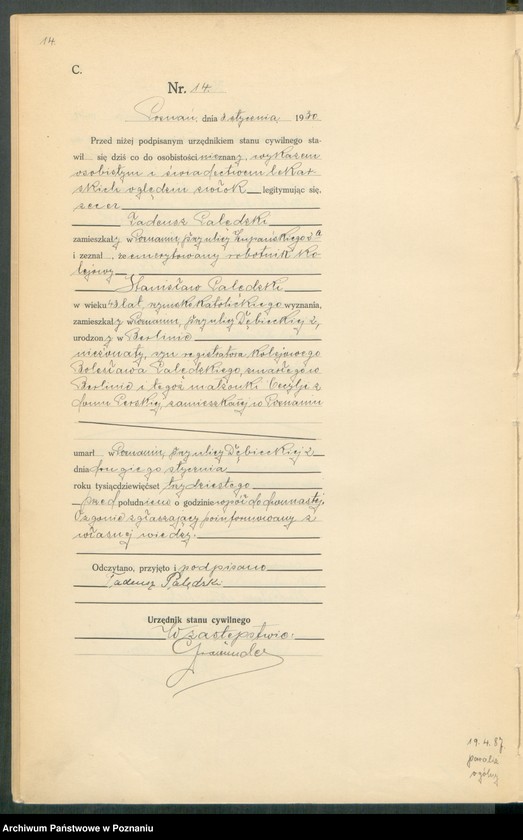 14.
C.
Nr. 14.
Poznań, dnia 3 stycznia 1930
Przed niżej podpisanym urzędnikiem stanu cywilnego sta-
wił się dziś co do osobistości nieznany, wykazem
osobistym i świadectwem lekar
skich oględzin zwłok legitymując się,
zecer
Tadeusz Palędzki
zamieszkały w Poznaniu, przy ulicy Łupańskiego
i zeznał, że emerytowany robotnik ko
lejowy
Stanisław Palędzki
w wieku 43 lat, rzymsko katolickiego wyznania,
zamieszkały w Poznaniu, przy ulicy Dębieckiej 2,
urodzony w Berlinie
nieżonaty, syn registratora kolejowego
Bolesława Palędzkiego, zmarłego w
Berlinie i tegoż małżonki Cecylji z
domu Perskiej, zamieszkałej w Poznaniu
umarł w Poznaniu, przy ulicy Dębieckiej 2
dnia drugiego stycznia
roku tysiącdziewięćset trzydziestego
przed południem o godzinie wpół do dwunastej.
O zgonie zgłaszający poinformowany z
własnej wiedzy.
Odczytano, przyjęto i podpisano
Tadeusz Palędzki
Urzędnik stanu cywilnego
W zastępstwie:
19. 4. 87.
paraliż
ogólny
Archiwum Państwowe w Poznaniu